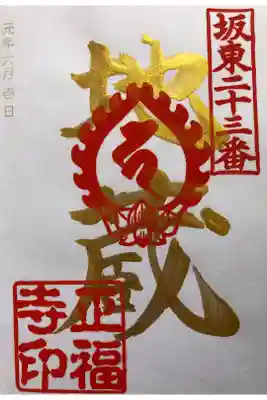 坂東二十三番
地蔵
正福寺印
元年六月吉日